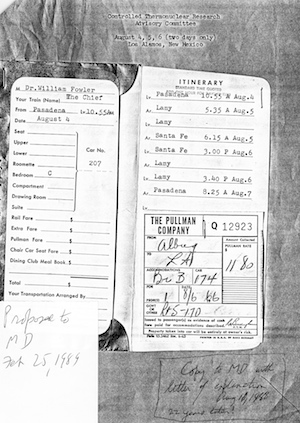 Controlled Thermonuclear Research
Advisory Committee
August 4, 5, 6 (two days only)
Los Alamos, New Mexico
M Dr. William Fowler
Your Train (Name) The Chief
From Pasadena 10.55AM
Date August 4
Seat
Upper
Lower Car No.
Roomette 207
Bedroom C
Compartment
Drawing Room
Suite
Rail Fare $
Extra Fare
Pullman Fare
Chair Car Seat Fare
Dining Club Meal Book $
Total $
Your Transportation Arranged By
ITINERARY
STANDARD TIME QUOTED
Lv. Pasadena 10.55 A Aug.4
Ar. Lamy 5.35 A Aug.5
Lv. Lamy
Ar. Santa Fe 6.15 A Aug.5
Lv. Santa Fe 3.00 P Aug.6
Ar. Lamy
Lv. Lamy 3.40 P Aug.6
Ar. Pasadena 8.25 A Aug.7
Lv.
THE PULLMAN
COMPANY
Q 12923
FROM Albuq
TO LA
Amount Collected
PULLMAN RATE
$ 11 80
ACCOMMODATIONS CAR
Br B 174
1 8/6 66
Property taken into car will be entirely at owner's risk.
Propose to
MD
Feb 25, 1989
Copy to MD with
letter of explanation
Aug 10, 1960
22 years later!